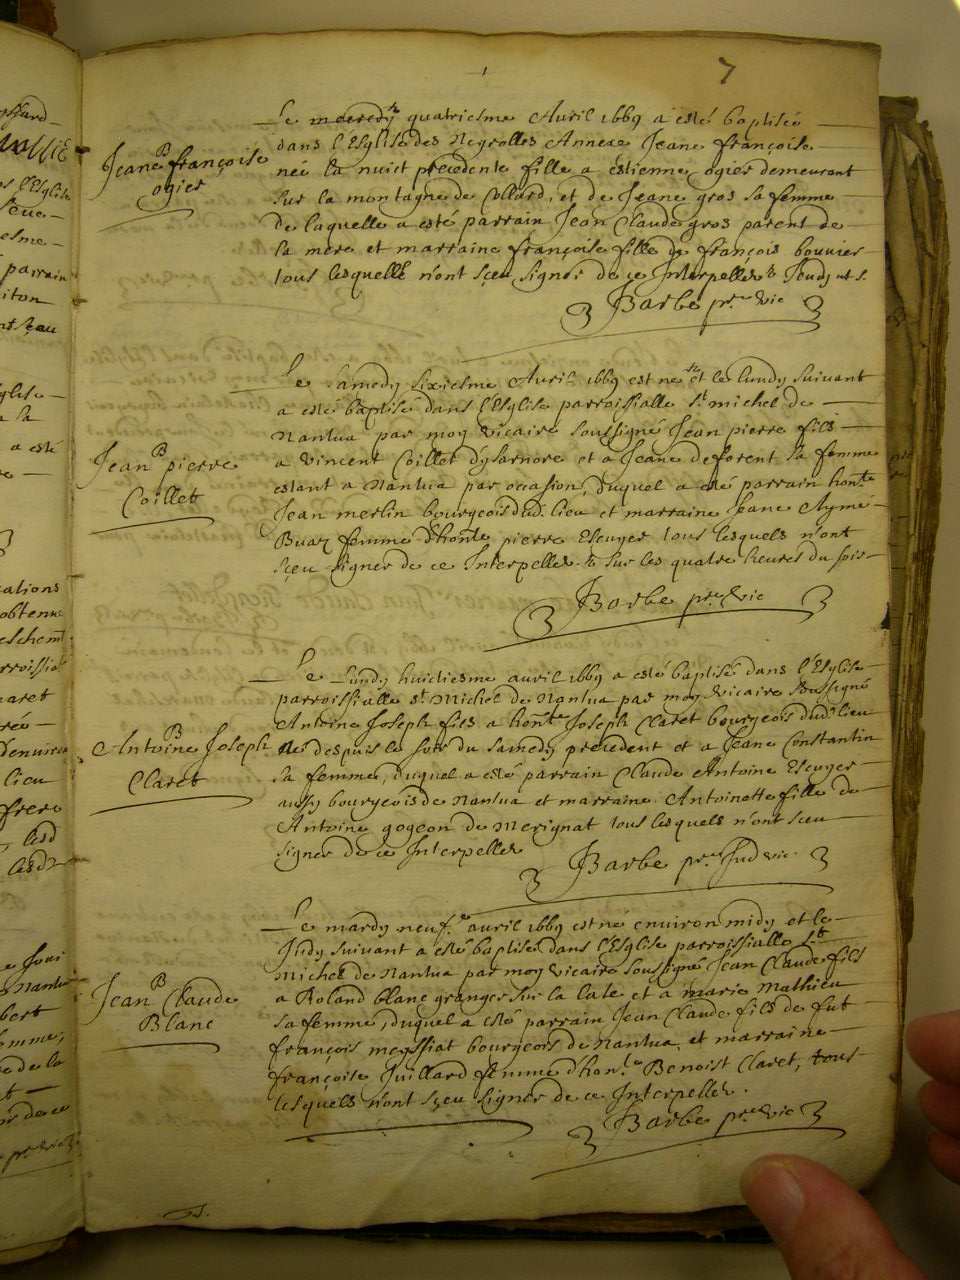 7
B
Jeane françoise
ogier
Le mecredy quatriesme Avril 1669 a esté baptisée
dans l'Esglise des Neyrolles Annexe Jeane françoise
née la nuict precedente fille a estienne ogier demeurant
sur la montagne de Collard, et de Jeane gros sa femme
de laquelle a esté parrain Jean Claude gros parent de
la mere et marraine françoise fille de françois bouvier
tous lesquelle n'ont sçeu signer de ce Interpelles
Barbe vic
B
Jean pierre
Coillet
Le Samedy sixiesme Avril 1669 est ne et le lundy suivant
a esté baptisé dans l'Esglise parroissialle St michel de
Nantua par moy vicaire soussigné Jean pierre fils
a vincent Coillet d'ysarnore et a Jeane deforent sa femme
estant a Nantua par occasion, duquel a esté parrain honle
Jean merlin bourgeois dud. lieu et marraine Jeane Aymé
Buaz femme d'honle pierre Escuyer tous lesquels n'ont
sçeu signer de ce Interpelles sur les quatre heures du soir
Barbe vic
B
Antoine Joseph
Claret
Le Lundy huictiesme avril 1669 a esté baptisé dans l'Esglise
parroissialle st Michel de Nantua par moy vicaire soussigné
Antoine Joseph fils a honle Joseph Claret bourgeois dud. lieu
né despuis le soir du samedy precedent et a Jeane Constantin
sa femme, duquel a esté parrain Claude Antoine Escuyer
aussy bourgeois de Nantua et marraine Antoinette fille de
Antoine gogeon de Merignat tous lesquels n'ont sceu
signer de ce Interpelles
Barbe vic
B
Jean Claude
Blanc
Le mardy neuf.e avril 1669 est né environ midy et le
Judy suivant a esté baptise dans l'Esglise parroissialle St
Michel de Nantua par moy vicaire soussigné Jean Claude fils
a Roland blanc granger sur la Cale et a marie Mathieu
sa femme, duquel a esté parrain Jean Claude fils de fut
françois meyssiat bourgeois de Nantua et marraine
françoise Juillard femme d'hon.le Benoist Claret, tous
lesquels n'ont sçeu signer de ce Interpelles.
Barbe vic